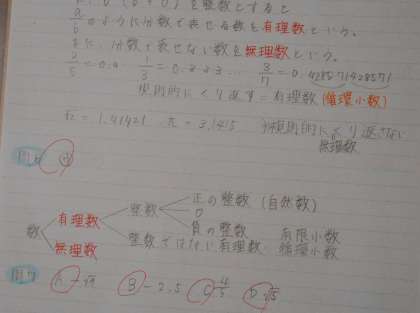 (b≠0)を整数とすると
a/b のように分数で表せる数を有理数という。
また、分数で表せない数を無理数という。
2/5 = 0.4 1/3 = 0.333… 3/7 = 0.42857142857 1
規則的にくり返す=有理数(循環小数)
√2 = 1.41421 π = 3.1415 不規則的にくり返さない
無理数
問6
正の整数 (自然数)
整数 0
有理数 負の整数 有限小数
数 整数ではない有理数 循環小数
無理数
問7 A -√9 B -2.5 C 4/5 D √15